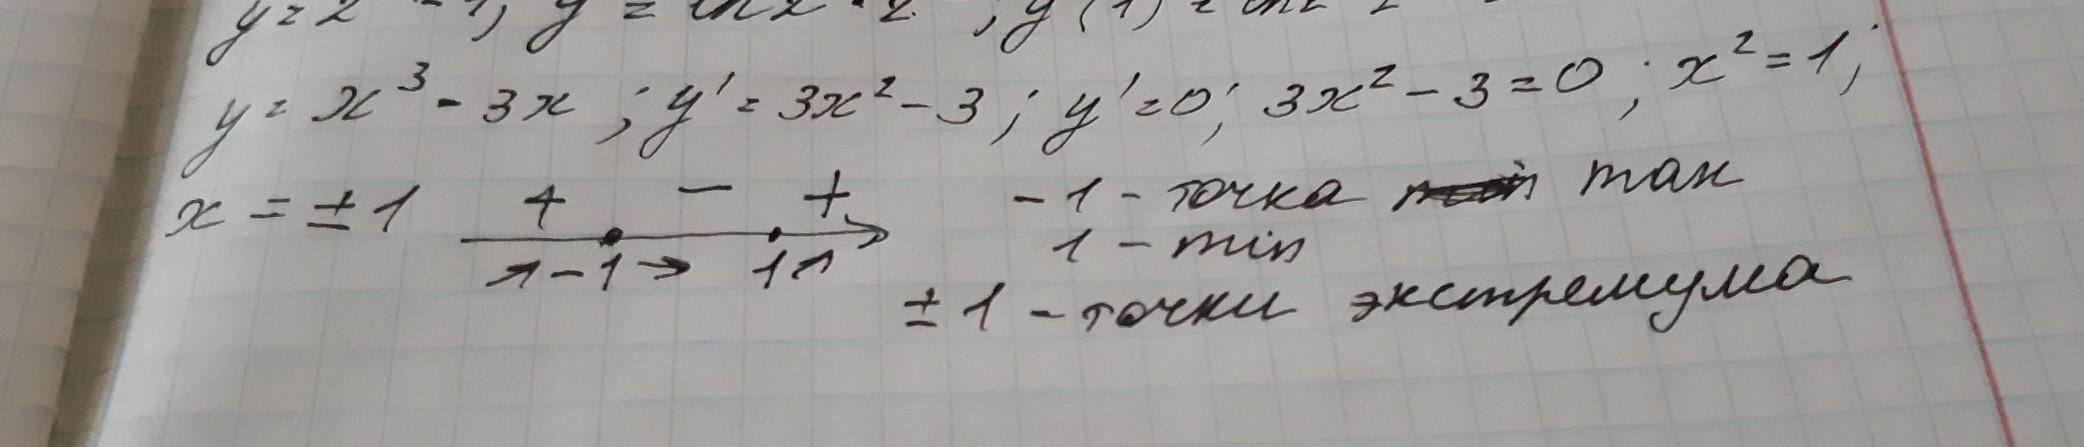 y = x³ - 3x ; y' = 3x² - 3 ; y' = 0 ; 3x² - 3 = 0 ; x² = 1 ;
x = ± 1 + - + -1 - точка max
↗ -1 → 1 ↗ 1 - min
± 1 - точки экстремума